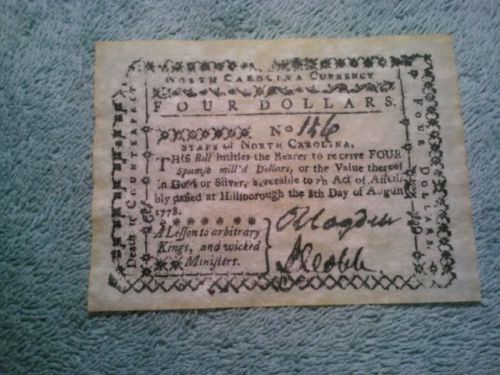 NORTH CAROLINA CURRENCY
FOUR DOLLARS.
No 156
STATE of NORTH CAROLINA.
THIS Bill intitles the Bearer to receive FOUR
Spanish mill'd Dollars, or the Value thereof
in Gold or Silver, agreeable to Act of Assem
bly passed at Hillsborough the 8th Day of August
1778.
A Lesson to arbitrary
Kings, and wicked
Ministers.
Death to COUNTERFEIT
FOUR DOLLARS.